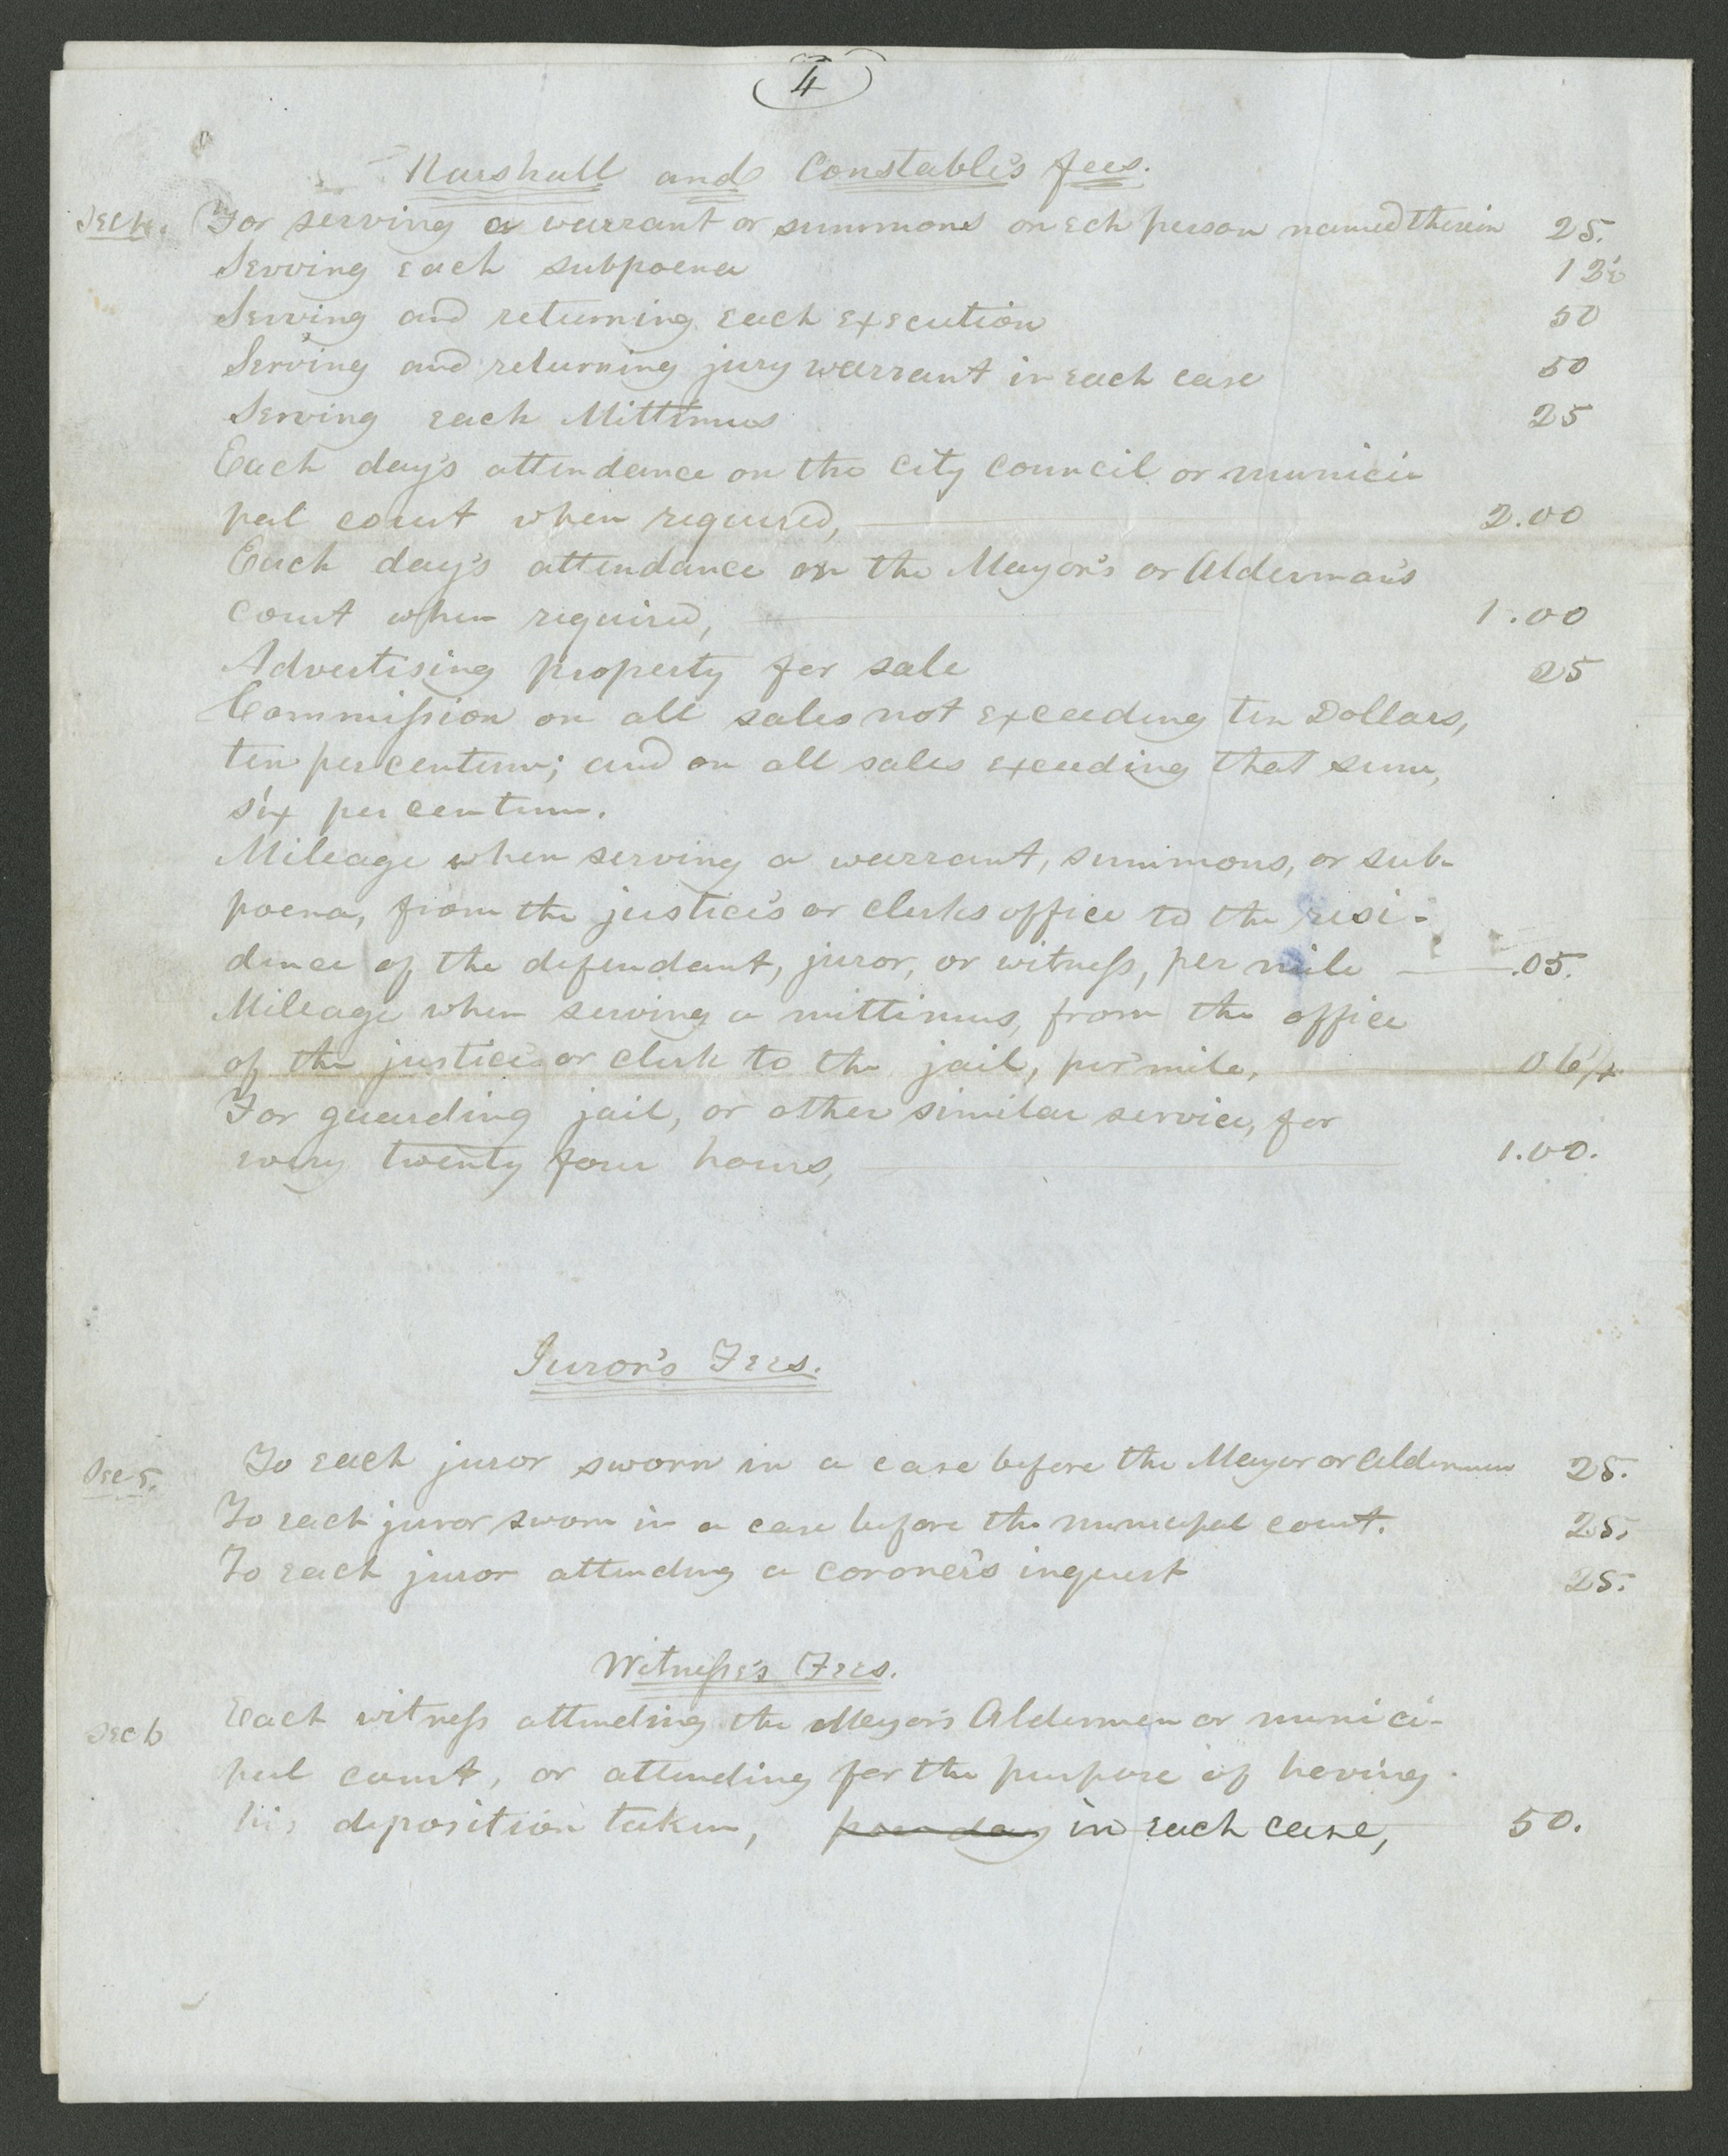 4
Marshall and Constable's fees.
Sec 4. For serving a warrant or summons on ech person named therein 25.
Serving each subpoena 12½
Serving and returning each execution 50
Serving and returning jury warrant in each case 50
Serving each Mittimus 25
Each day's attendance on the city council or munici
pal court when required, 2.00
Each day's attendance on the Mayor's or Alderman's
court when required, 1.00
Advertising property for sale 25
Commission on all sales not exceeding ten Dollars,
ten per centum; and on all sales exceeding that sum,
six per centum.
Mileage when serving a warrant, summons, or sub-
poena, from the justice's or clerks office to the resi-
dence of the defendant, juror, or witness, per mile .05.
Mileage when serving a mittimus, from the office
of the justice or clerk to the jail, per mile, 06¼
For guarding jail, or other similar service, for
every twenty four hours, 1.00.
Juror's Fees.
Sec 5. To each juror sworn in a case before the Mayor or Aldermen 25.
To each juror sworn in a case before the municipal court. 25.
To each juror attending a coroner's inquest 25.
Witness's Fees.
Sec 6 Each witness attending the Mayor's Aldermen or munici-
pal court, or attending for the purpose of having
his deposition taken, per day in each case, 50.